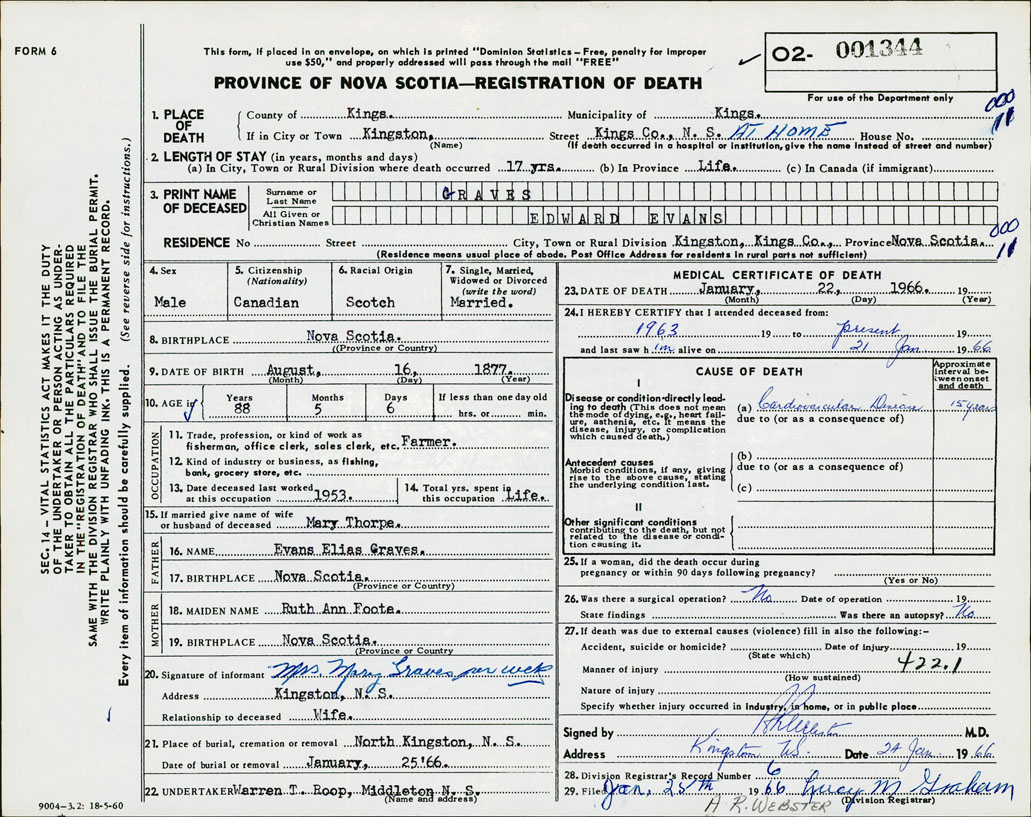 FORM 6
This form, if placed in an envelope, on which is printed "Dominion Statistics – Free, penalty for improper
use $50," and properly addressed will pass through the mail "FREE"
02- 001344
For use of the Department only
PROVINCE OF NOVA SCOTIA—REGISTRATION OF DEATH
000
11
1. PLACE OF DEATH
County of Kings. Municipality of Kings.
If in City or Town Kingston, Street Kings Co., N. S. AT HOME House No.
(Name) (If death occurred in a hospital or institution, give the name instead of street and number)
2. LENGTH OF STAY (in years, months and days)
(a) In City, Town or Rural Division where death occurred 17 yrs. (b) In Province Life. (c) In Canada (if immigrant)
3. PRINT NAME OF DECEASED
Surname or Last Name GRAVES
All Given or Christian Names EDWARD EVANS
000
11
RESIDENCE No Street City, Town or Rural Division Kingston, Kings Co., Province Nova Scotia.
(Residence means usual place of abode. Post Office Address for residents in rural parts not sufficient)
4. Sex
Male
5. Citizenship
(Nationality)
Canadian
6. Racial Origin
Scotch
7. Single, Married,
Widowed or Divorced
(write the word)
Married.
8. BIRTHPLACE Nova Scotia.
((Province or Country)
9. DATE OF BIRTH August, 16, 1877.
(Month) (Day) (Year)
10. AGE in
Years Months Days If less than one day old
88 5 6 hrs. or min.
OCCUPATION
11. Trade, profession, or kind of work as
fisherman, office clerk, sales clerk, etc. Farmer.
12. Kind of industry or business, as fishing,
bank, grocery store, etc.
13. Date deceased last worked
at this occupation 1953.
14. Total yrs. spent in
this occupation Life.
15. If married give name of wife
or husband of deceased Mary Thorpe.
FATHER
16. NAME Evans Elias Graves.
17. BIRTHPLACE Nova Scotia.
(Province or Country)
MOTHER
18. MAIDEN NAME Ruth Ann Foote.
19. BIRTHPLACE Nova Scotia.
(Province or Country
20. Signature of informant Mrs. Mary Graves per
Address Kingston, N. S.
Relationship to deceased Wife.
21. Place of burial, cremation or removal North Kingston, N. S.
Date of burial or removal January, 25'66.
22. UNDERTAKER Warren T. Roop, Middleton N. S.
(Name and address)
9004–3.2: 18-5-60
MEDICAL CERTIFICATE OF DEATH
23. DATE OF DEATH January, 22, 1966. 19
(Month) (Day) (Year)
24. I HEREBY CERTIFY that I attended deceased from:
1963 19 to present 19
and last saw him alive on 21 Jan 19 66
CAUSE OF DEATH
Approximate
interval be-
tween onset
and death
I
Disease or condition-directly lead-
ing to death (This does not mean
the mode of dying, e.g., heart fail-
ure, asthenia, etc. It means the
disease, injury, or complication
which caused death.)
(a) Cardiovascular Disease 15 years
due to (or as a consequence of)
Antecedent causes
Morbid conditions, if any, giving
rise to the above cause, stating
the underlying condition last.
(b)
due to (or as a consequence of)
(c)
II
Other significant conditions
contributing to the death, but not
related to the disease or condi-
tion causing it.
25. If a woman, did the death occur during
pregnancy or within 90 days following pregnancy?
(Yes or No)
26. Was there a surgical operation? No Date of operation 19
State findings Was there an autopsy? No
27. If death was due to external causes (violence) fill in also the following:–
Accident, suicide or homicide? Date of injury 19
(State which)
422.1
Manner of injury
(How sustained)
Nature of injury
Specify whether injury occurred in industry, in home, or in public place
Signed by M.D.
Address Kingston NS. Date 24 Jan. 19 66
28. Division Registrar's Record Number 6
29. Filed Jan, 25th 19 66 Lucy M Graham
H R. WEBSTER (Division Registrar)
SEC. 14 – VITAL STATISTICS ACT MAKES IT THE DUTY
OF THE UNDERTAKER OR PERSON ACTING AS UNDER-
TAKER TO OBTAIN ALL THE PARTICULARS REQUIRED
IN THE "REGISTRATION OF DEATH" AND TO FILE THE
SAME WITH THE DIVISION REGISTRAR WHO SHALL ISSUE THE BURIAL PERMIT.
WRITE PLAINLY WITH UNFADING INK. THIS IS A PERMANENT RECORD.
Every item of information should be carefully supplied. (See reverse side for instructions.)